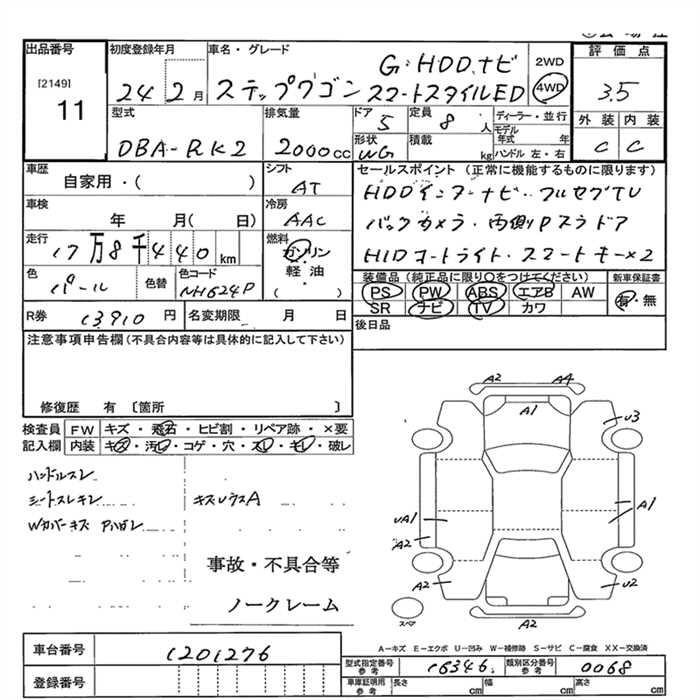 出品番号
[2149]
11
初度登録年月
24 2月
車名・グレード
G・HDDナビ
ステップワゴン スマートスタイルED
2WD
4WD
評価点
3.5
外装 内装
C C
型式
DBA-RK2
排気量
2000cc
ドア
5
定員
8人
形状
WG
積載
kg
ディーラー・並行
モデル年式 年
ハンドル 左・右
車歴
自家用・( )
シフト
AT
車検
年 月( 日)
冷房
AAC
走行
17万8千440km
燃料
ガソリン
軽油・
( )
色
パール
色替
色コード
NH624P
セールスポイント (正常に機能するものに限ります)
HDDインターナビ・フルセグTV
バックカメラ・両側Pスラドア
HIDコートライト・スマートキー×2
装備品 (純正品に限り○をつけてください)
PS PW ABS エアB AW
SR ナビ TV カワ
新車保証書
有・無
R券
13910円
名変期限 月 日
後日品
注意事項申告欄(不具合内容等は具体的に記入して下さい)
修復歴 有 〔箇所 〕
検査員
記入欄
FW キズ・飛石・ヒビ割・リペア跡・×要
内装 キズ・汚レ・コゲ・穴・スレ・キレ・破レ
ハンドルスレ
シートスレキレ
キズUウスA
Wカバーキズ Pハガレ
事故・不具合等
ノークレーム
A2 A4
A1
U3
UA1
A1
A2
A2
U2
A2
スペア
A-キズ E-エクボ U-凹み W-補修跡 S-サビ C-腐食 XX-交換済
車台番号
1201276
登録番号
型式指定番号
参考
16346
類別区分番号
参考
0068
車庫証明用
参考
長さ cm
幅 cm
高さ cm